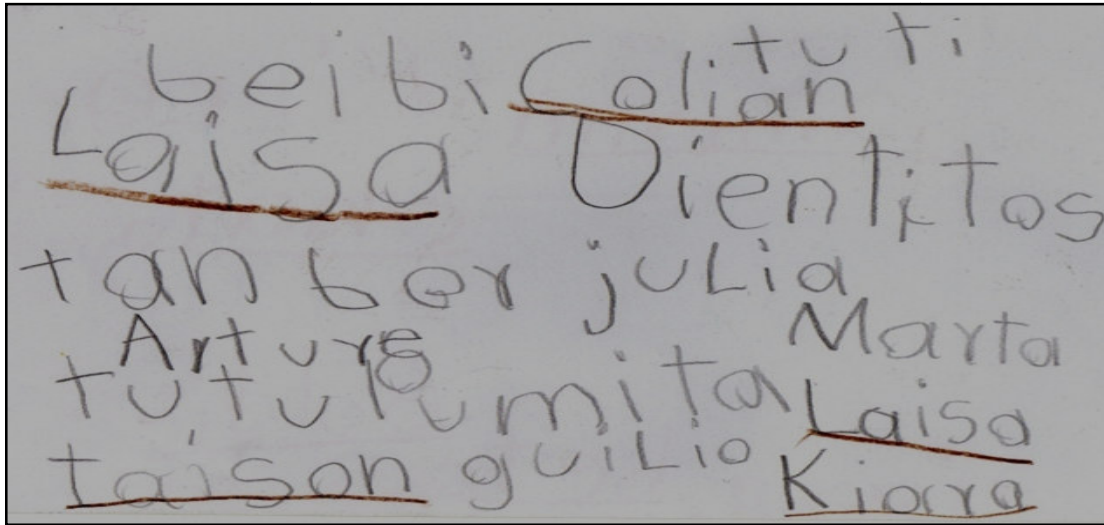 beibi Colian tuti
Laisa Dientitos
tan ber julia
Arturo Marta
tutulumita Laisa
taison guilio Kiara